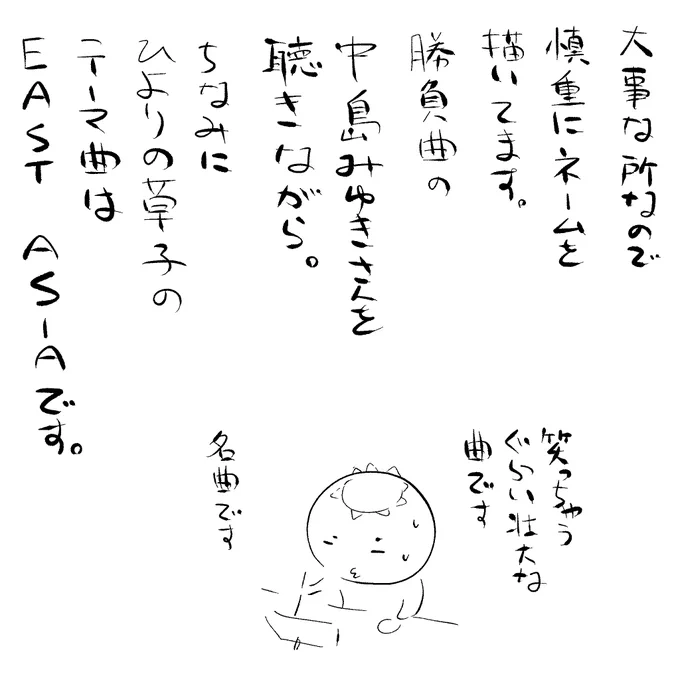 大事な所なので
慎重にネームを
描いてます。
勝負曲の
中島みゆきさんを
聴きながら。
ちなみに
ひよりの草子の
テーマ曲は
EAST ASIAです。
笑っちゃう
ぐらい壮大な
曲です
名曲です